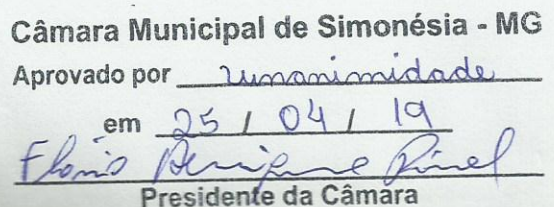 Câmara Municipal de Simonésia - MG
Aprovado por unanimidade
em 25 / 04 / 19
Presidente da Câmara